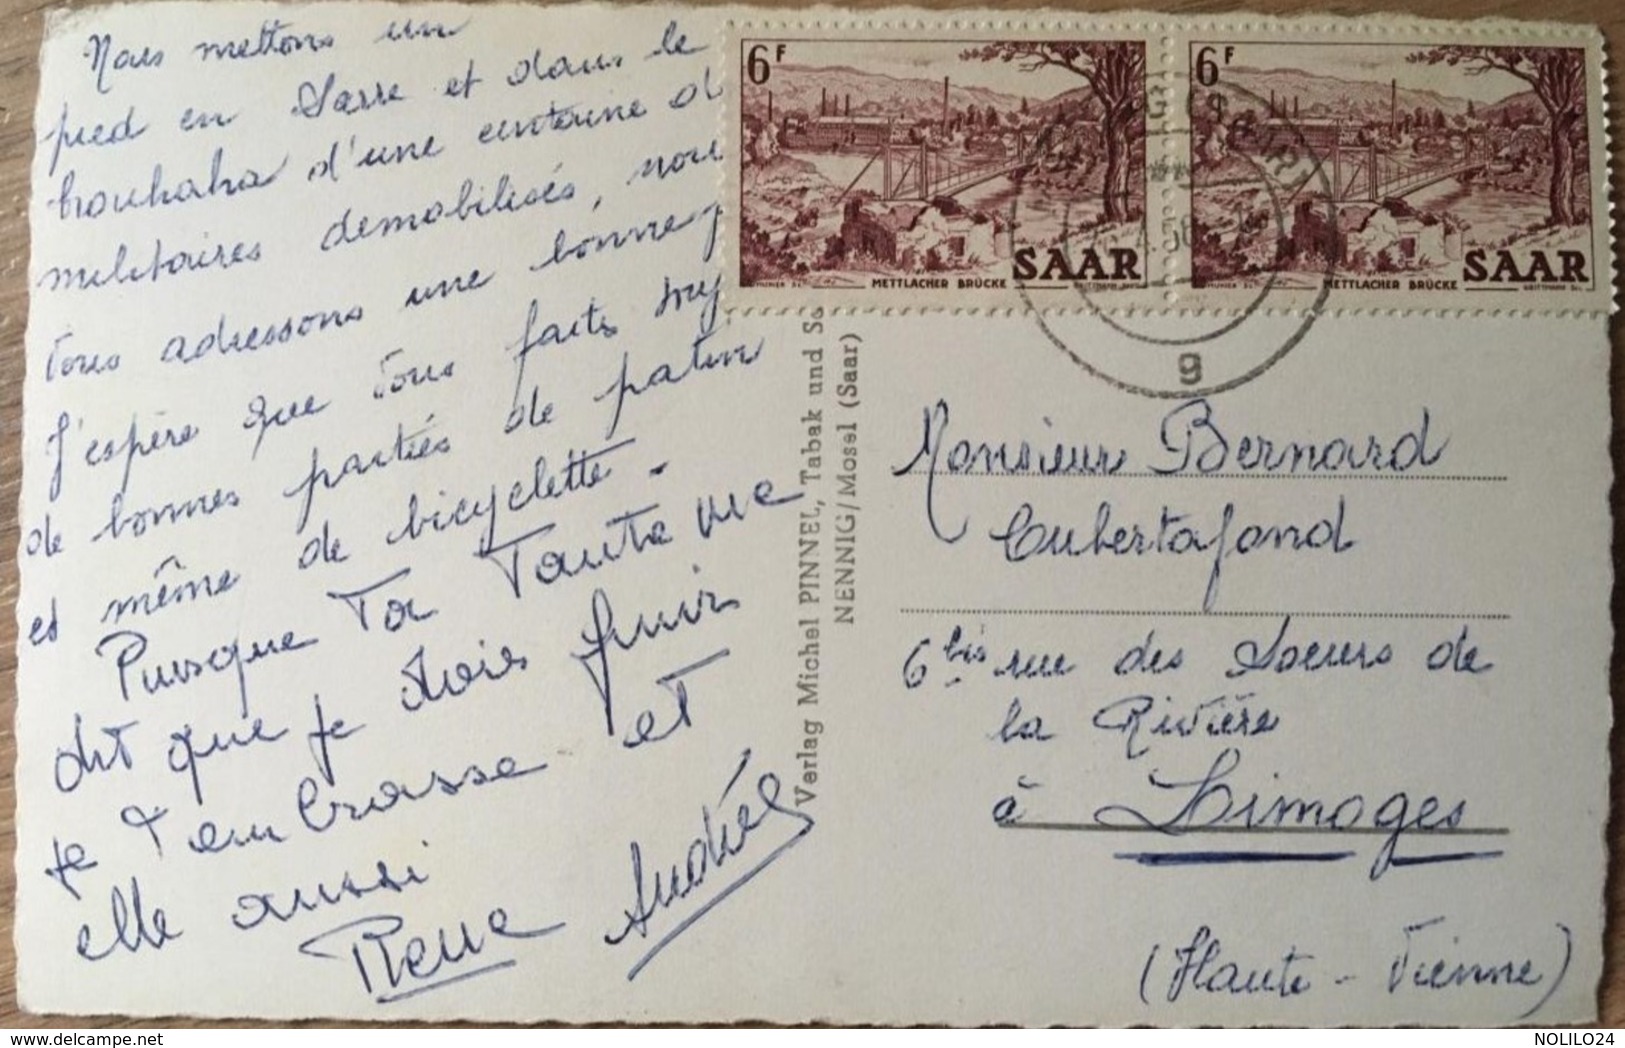 Nous mettons un
pied en Sarre et dans le
brouhaha d'une centaine d
militaires demobilisés, nou
tous adressons une bonne
J'espère que tous faits
de bonnes parties de patin
et même de bicyclette.
Puisque Ta Tante me
dit que je dois finir
je T'embrasse et
elle aussi
Rene Andrée
6F
SAAR
METTLACHER BRÜCKE
6F
SAAR
METTLACHER BRÜCKE
g
Verlag Michel PINNEL, Tabak und
NENNIG/Mosel (Saar)
Monsieur Bernard
Cubertafond
6 bis rue des Soeurs de
la Rivière
à Limoges
(Haute-Vienne)
NOLILO24